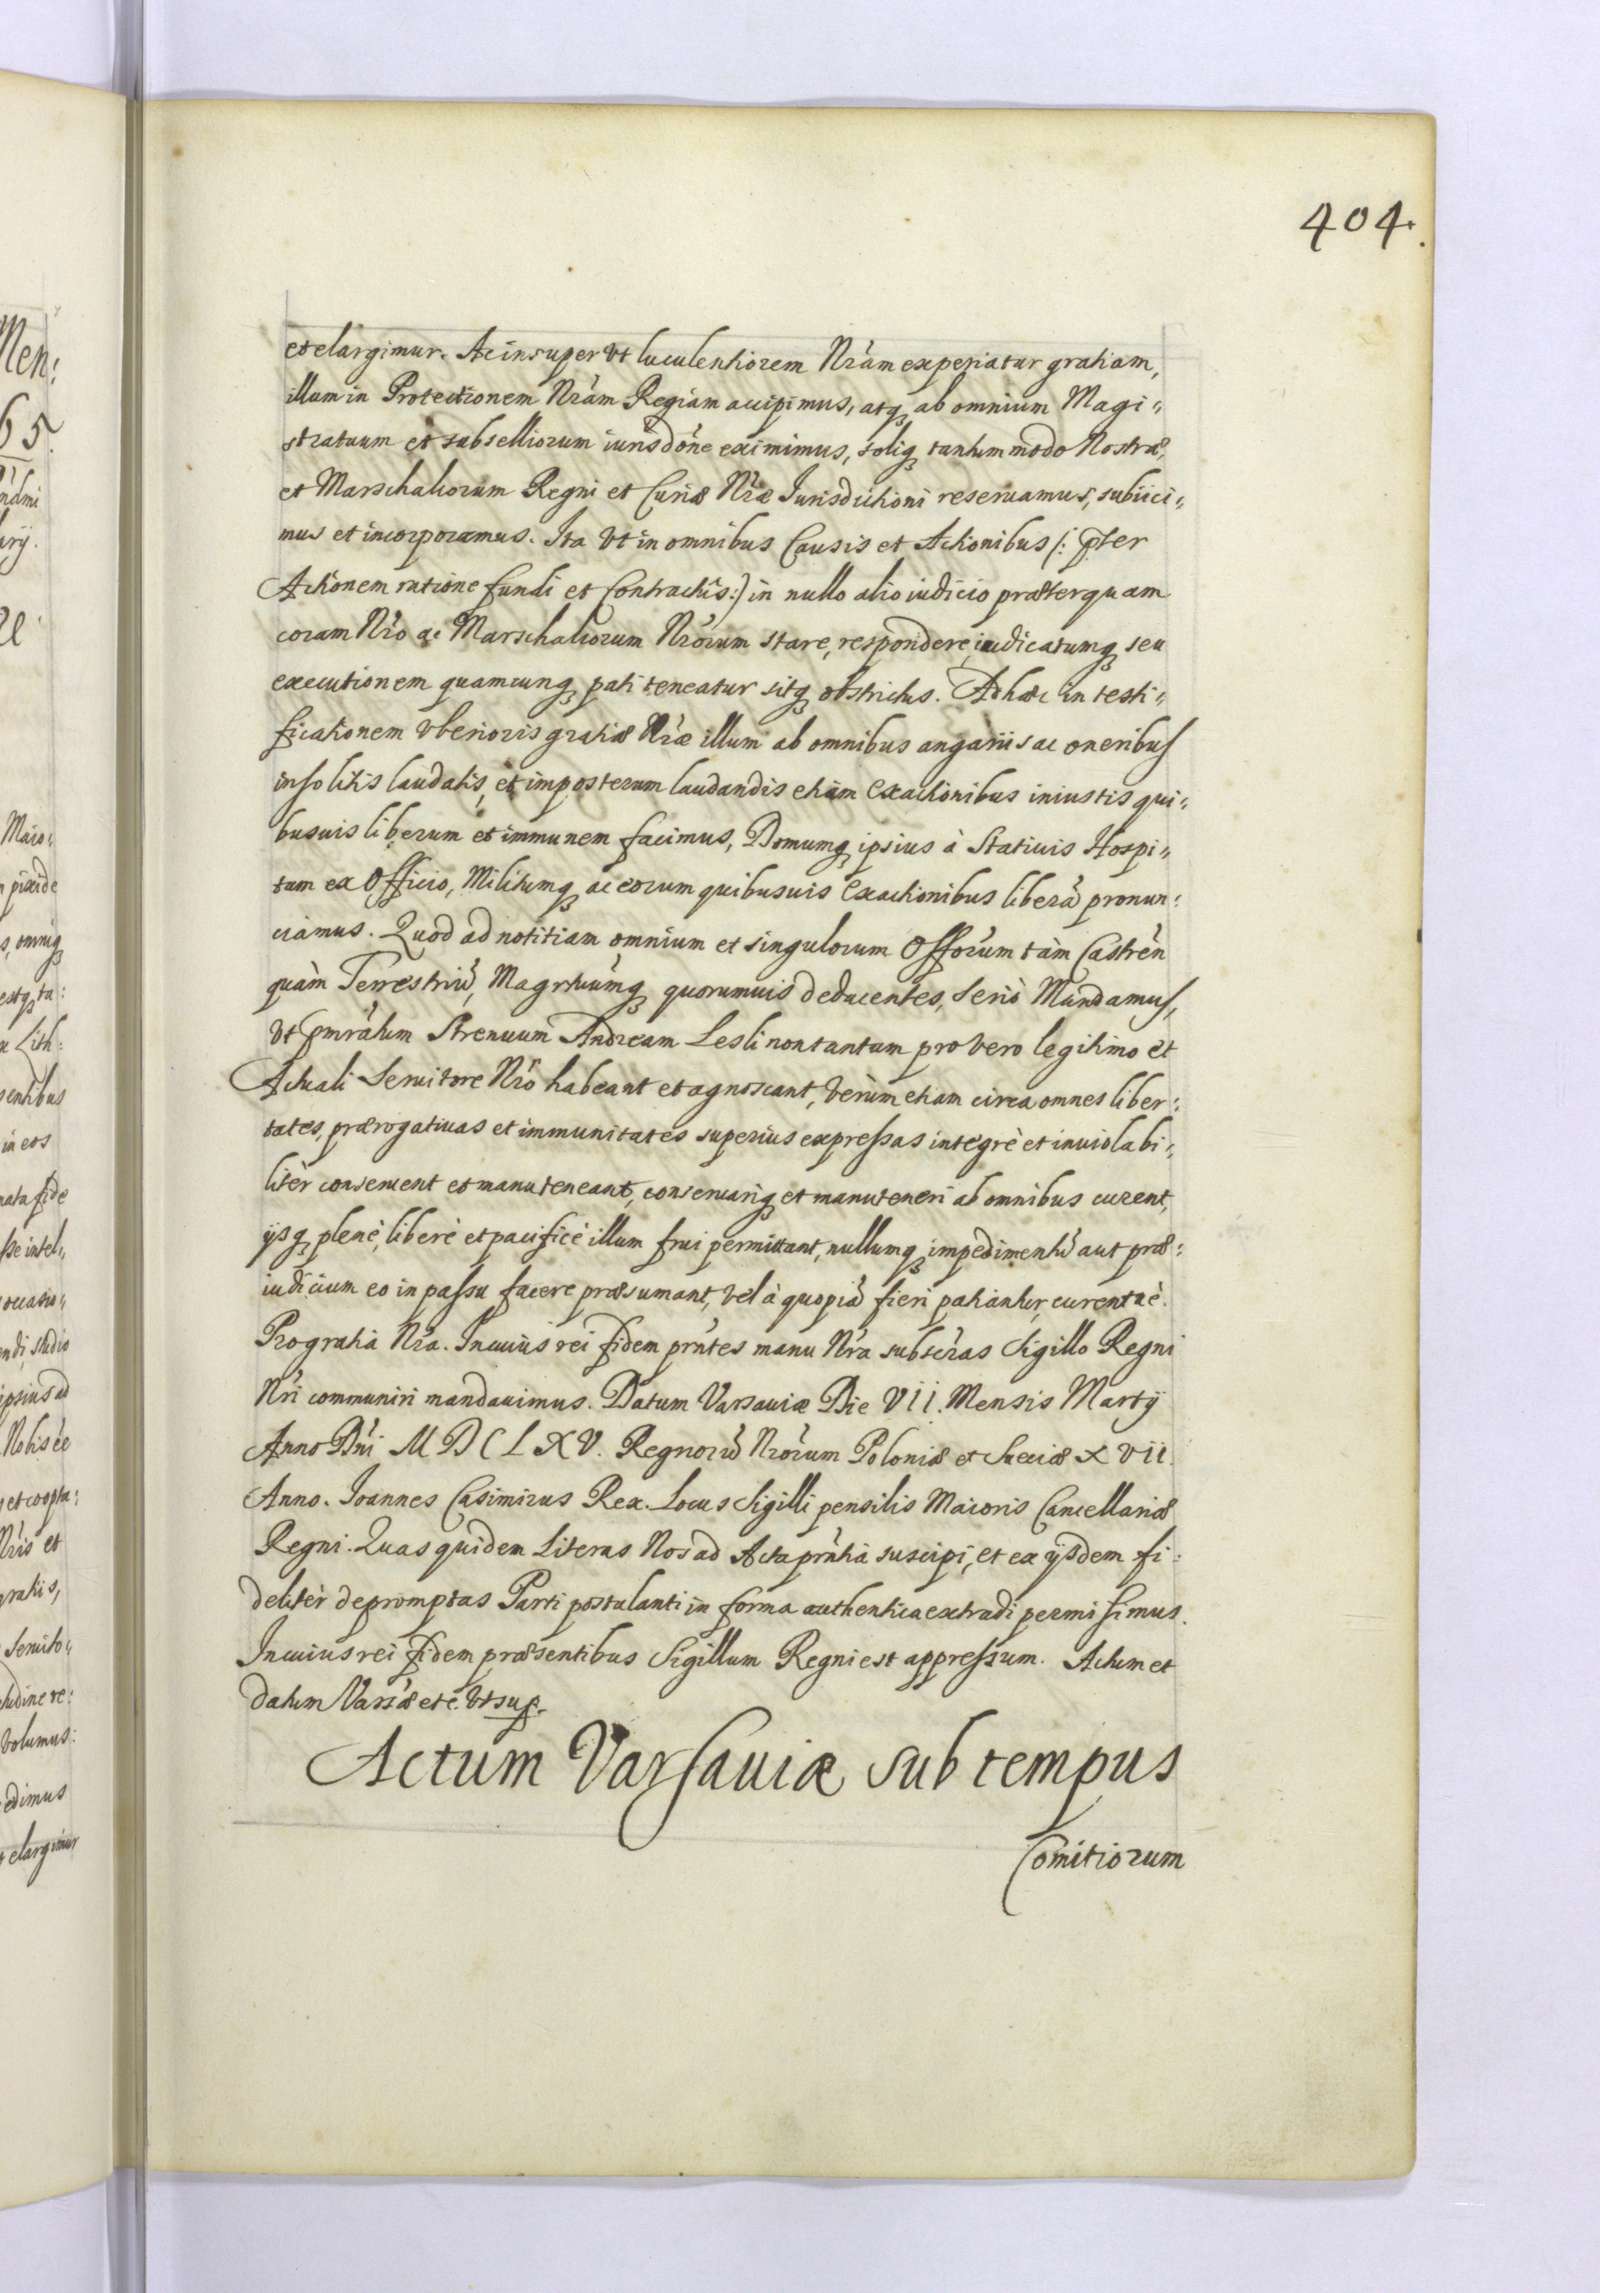 404.
et elargimur. Ac insuper Vt luculentiorem Nr̃am experiatur gratiam,
illum in Protectionem Nr̃am Regiam accipimus, atq́ ab omnium Magi„
stratuum et subselliorum iurisdõne eximimus, soliq́ tantummodo Nostræ,
et Marschaliorum Regni et Curiæ Nr̃æ Jurisdictioni reseruamus, subiici„
mus et incorporamus. Ita Vt in omnibus Causis et Actionibus (: p̃ter
Actionem ratione fundi et Contractûs:) in nullo alio iudicio præterquam
coram Nr̃o ac Marschaliorum Nr̃orum stare, respondere, iudicatumq́ seu
executionem quamcunq́ pati teneatur sitq́ obstrictus. Adhæc in testi„
ficationem Vberioris gratiæ Nr̃æ illum ab omnibus angariis ac oneribus
insolitis laudatis, et imposterum laudandis etiam Exactionibus iniustis qui„
busuis liberum et immunem facimus, Domumq́ ipsius à Statiuis Hospi„
tum ex Officio, Militumq́ ac eorum quibusuis Exactionibus liberã pronun:
ciamus. Quod ad notitiam omnium et singulorum Offõrum tàm Castreñ
quàm Terrestriũ, Magrtuũmq́ quorumuis deducentes, Seriò Mandamus,
Vt pmr̃atum Strenuum Andream Lesli non tantum pro Vero legitimo et
Actuali Seruitore Nr̃o habeant et agnoscant, Verùm etiam circa omnes liber:
tates, prærogatiuas et immunitates superius expressas integrè et inuiolabi„
litèr conseruent et manuteneant, conseruariq́ et manuteneri ab omnibus curent,
ijsq́ plenè, liberè et pacificè illum frui permittant, nullumq́ impedimentũ aut præ:
iudicium eo in passu facere præsumant, Vel à quopiã fieri patiantur, curent ꝑ̃
Pro gratia Nr̃a. In cuius rei fidem pr̃ntes manu Nr̃a subscr̃as Sigillo Regni
Nr̃i communiri mandauimus. Datum Varsauiæ Die VII. Mensis Martij
Anno Dñi MDCLXV. Regnorũ Nr̃orum Poloniæ et Sueciæ XVII.
Anno. Joannes Casimirus Rex. Locus Sigilli pensilis Maioris Cancellariæ
Regni. Quas quidem Literas Nos ad Acta pr̃ntia suscipi, et ex ijsdem fi:
delitèr depromptas Parti postulanti in forma authentica extradi permisimus.
In cuius rei fidem præsentibus Sigillum Regni est appressum. Actum et
datum Varsæ etc Vt sup.
Actum Varsauiæ sub tempus
Comitiorum